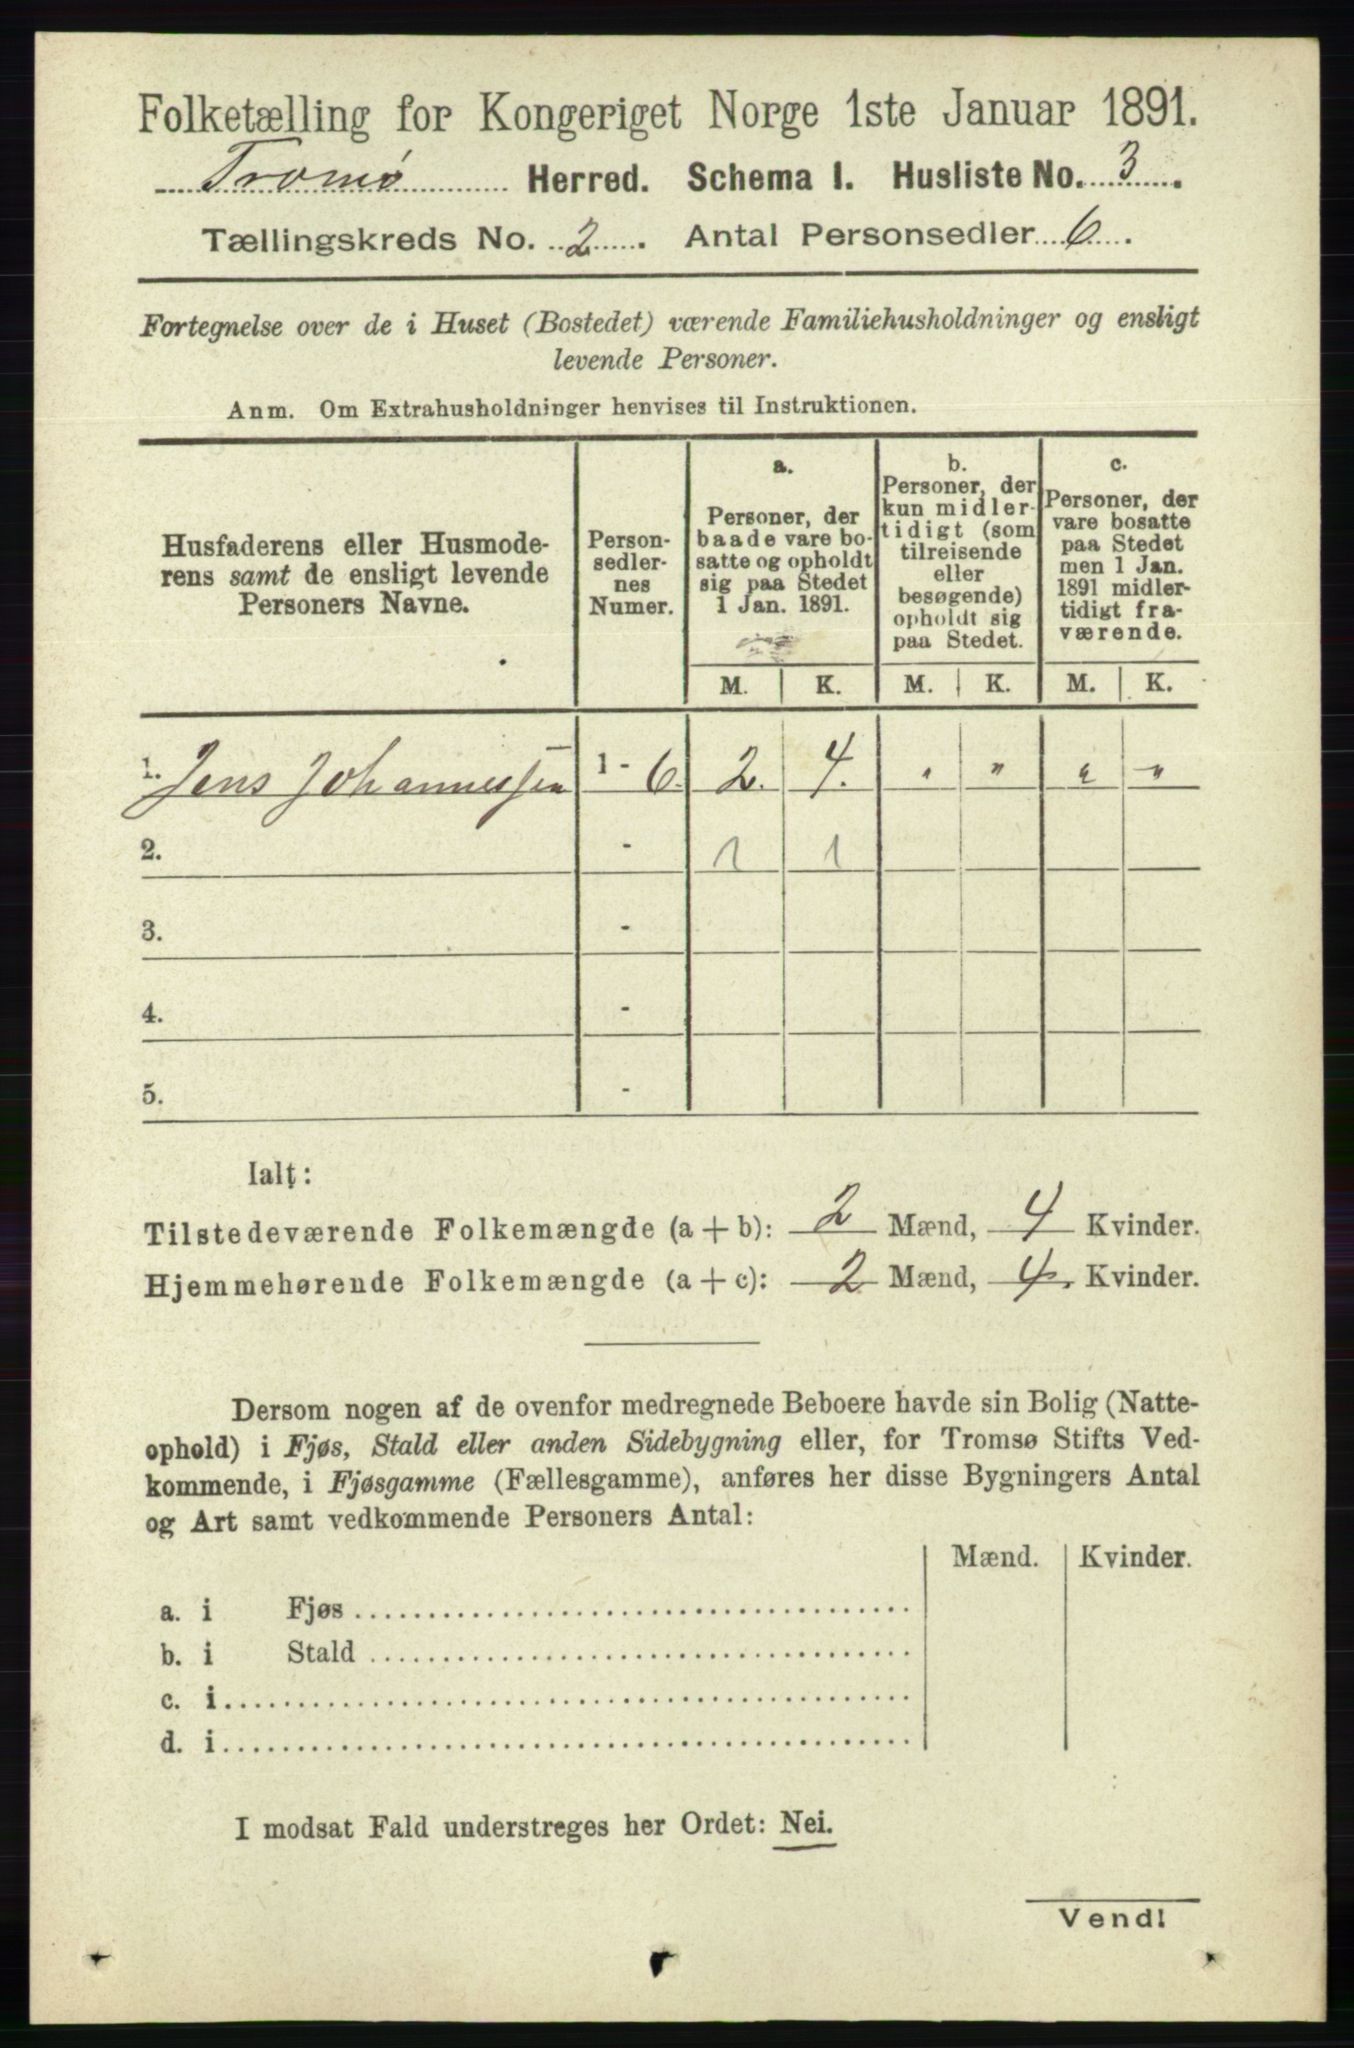 Folketælling for Kongeriget Norge 1ste Januar 1891.
Tromø Herred. Schema 1. Husliste No. 3.
Tællingskreds No. 2. Antal Personsedler 6.
Fortegnelse over de i Huset (Bostedet) værende Familiehusholdninger og ensligt
levende Personer.
Anm. Om Extrahusholdninger henvises til Instruktionen.
Husfaderens eller Husmode-
rens samt de ensligt levende
Personers Navne.
Person-
sedler-
nes
Numer.
a.
Personer, der
baade vare bo-
satte og opholdt
sig paa Stedet
1 Jan. 1891.
b.
Personer, der
kun midler-
tidigt (som
tilreisende
eller
besøgende)
opholdt sig
paa Stedet.
c.
Personer, der
vare bosatte
paa Stedet
men 1 Jan.
1891 midler-
tidigt fra-
værende.
M. K. M. K. M. K.
1. Jens Johannessen 1 - 6. 2. 4. " " " "
2. - 1 1
3. -
4. -
5. -
Ialt:
Tilstedeværende Folkemængde (a + b): 2 Mænd, 4 Kvinder.
Hjemmehørende Folkemængde (a + c): 2 Mænd, 4. Kvinder.
Dersom nogen af de ovenfor medregnede Beboere havde sin Bolig (Natte-
ophold) i Fjøs, Stald eller anden Sidebygning eller, for Tromsø Stifts Ved-
kommende, i Fjøsgamme (Fællesgamme), anføres her disse Bygningers Antal
og Art samt vedkommende Personers Antal:
Mænd. Kvinder.
a. i Fjøs
b. i Stald
c. i
d. i
I modsat Fald understreges her Ordet: Nei.
Vend!